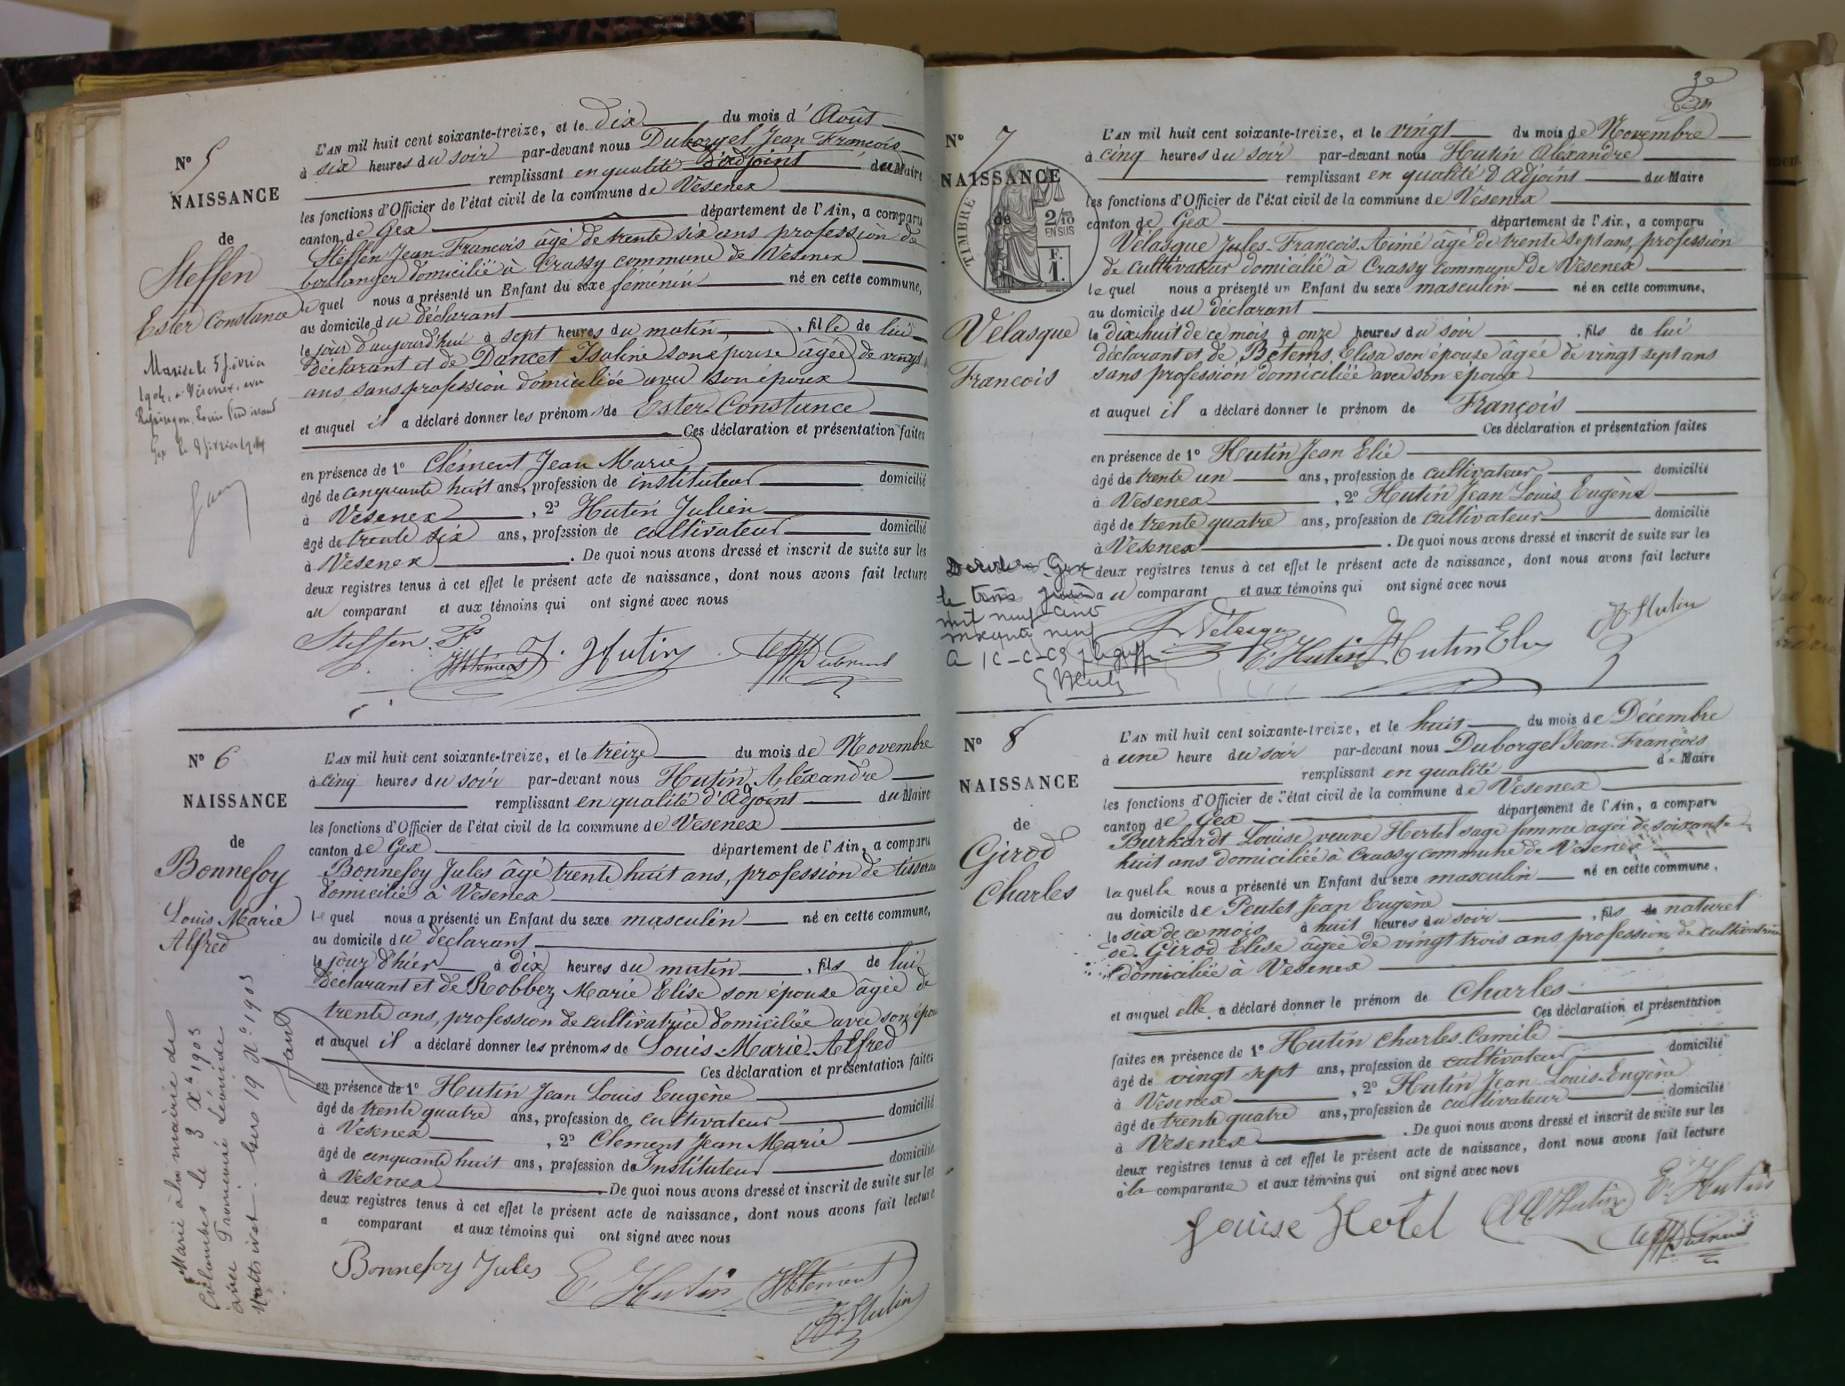 N° 5
NAISSANCE
de
Steffen
Ester Constance
L'AN mil huit cent soixante-treize, et le dix du mois d'Août
à six heures du soir par-devant nous Duborgel Jean François
remplissant en qualité d'adjoint du Maire
les fonctions d'Officier de l'état civil de la commune de Vesenex
canton de Gex département de l'Ain, a comparu
Steffen Jean François âgé de trente six ans profession de
boulanger domicilié à Crassy commune de Vesenex
le quel nous a présenté un Enfant du sexe féminin né en cette commune,
au domicile du déclarant
le jour d'aujourd'hui à sept heures du matin, fille de lui
déclarant et de Dancet Isaline son épouse âgée de vingt
ans, sans profession domiciliée avec son époux
et auquel il a déclaré donner les prénoms de Ester Constance
Ces déclaration et présentation faites
en présence de 1° Clément Jean Marie
âgé de cinquante huit ans, profession de instituteur domicilié
à Vesenex, 2° Hutin Julien
âgé de trente six ans, profession de cultivateur domicilié
à Vesenex. De quoi nous avons dressé et inscrit de suite sur les
deux registres tenus à cet effet le présent acte de naissance, dont nous avons fait lecture
au comparant et aux témoins qui ont signé avec nous
Steffen J. Hutin
N° 6
NAISSANCE
de
Bonnefoy
Louis Marie
Alfred
Marié à la mairie de
Colombes le 3 Xe 1903
avec
19 Xe 1903
L'AN mil huit cent soixante-treize, et le treize du mois de Novembre
à cinq heures du soir par-devant nous Hutin Aléxandre
remplissant en qualité d'Adjoint du Maire
les fonctions d'Officier de l'état civil de la commune de Vesenex
canton de Gex département de l'Ain, a comparu
Bonnefoy Jules âgé trente huit ans, profession de tisserand
domicilié à Vesenex
le quel nous a présenté un Enfant du sexe masculin né en cette commune,
au domicile du déclarant
le jour d'hier à dix heures du matin, fils de lui
déclarant et de Robbez Marie Elise son épouse âgée de
trente ans, profession de cultivatrice domiciliée avec son époux
et auquel il a déclaré donner les prénoms de Louis Marie Alfred
Ces déclaration et présentation faites
en présence de 1° Hutin Jean Louis Eugène
âgé de trente quatre ans, profession de cultivateur domicilié
à Vesenex, 2° Clément Jean Marie
âgé de cinquante huit ans, profession de Instituteur domicilié
à Vesenex De quoi nous avons dressé et inscrit de suite sur les
deux registres tenus à cet effet le présent acte de naissance, dont nous avons fait lecture
a comparant et aux témoins qui ont signé avec nous
Bonnefoy Jules E. Hutin JMClément
A. Hutin
N° 7
NAISSANCE
de
TIMBRE
2/10 EN SUS
F. 1.
Velasque
François
L'AN mil huit cent soixante-treize, et le vingt du mois de Novembre
à cinq heures du soir par-devant nous Hutin Aléxandre
remplissant en qualité d'Adjoint du Maire
les fonctions d'Officier de l'état civil de la commune de Vesenex
canton de Gex département de l'Ain, a comparu
Velasque Jules François Aimé âgé de trente sept ans, profession
de cultivateur domicilié à Crassy commune de Vesenex
le quel nous a présenté un Enfant du sexe masculin né en cette commune,
au domicile du déclarant
le dix huit de ce mois à onze heures du soir, fils de lui
déclarant et de Bétems Elisa son épouse âgée de vingt sept ans
sans profession domiciliée avec son époux
et auquel il a déclaré donner le prénom de François
Ces déclaration et présentation faites
en présence de 1° Hutin Jean Elie
âgé de trente un ans, profession de cultivateur domicilié
à Vesenex, 2° Hutin Jean Louis Eugène
âgé de trente quatre ans, profession de cultivateur domicilié
à Vesenex. De quoi nous avons dressé et inscrit de suite sur les
deux registres tenus à cet effet le présent acte de naissance, dont nous avons fait lecture
au comparant et aux témoins qui ont signé avec nous
Gex
le trois
mil neuf cent
neuf
Velasque E. Hutin Hutin Elie A. Hutin
N° 8
NAISSANCE
de
Girod
Charles
L'AN mil huit cent soixante-treize, et le huit du mois de Décembre
à une heure du soir par-devant nous Duborgel Jean François
remplissant en qualité d Maire
les fonctions d'Officier de l'état civil de la commune de Vesenex
canton de Gex département de l'Ain, a comparu
Burhardt Louise veuve Hertel sage femme agée de soixante
huit ans domiciliée à Crassy commune de Vesenex
la quelle nous a présenté un Enfant du sexe masculin né en cette commune,
au domicile de Pentet Jean Eugène
le six de ce mois à huit heures du soir, fils naturel
de Girod Elise âgée de vingt trois ans profession de cultivatrice
domiciliée à Vesenex
et auquel elle a déclaré donner le prénom de Charles
Ces déclaration et présentation
faites en présence de 1° Hutin Charles Camile
âgé de vingt sept ans, profession de cultivateur domicilié
à Vesenex, 2° Hutin Jean Louis Eugène
âgé de trente quatre ans, profession de cultivateur domicilié
à Vesenex. De quoi nous avons dressé et inscrit de suite sur les
deux registres tenus à cet effet le présent acte de naissance, dont nous avons fait lecture
à la comparante et aux témoins qui ont signé avec nous
Louise Hertel Hutin E. Hutin